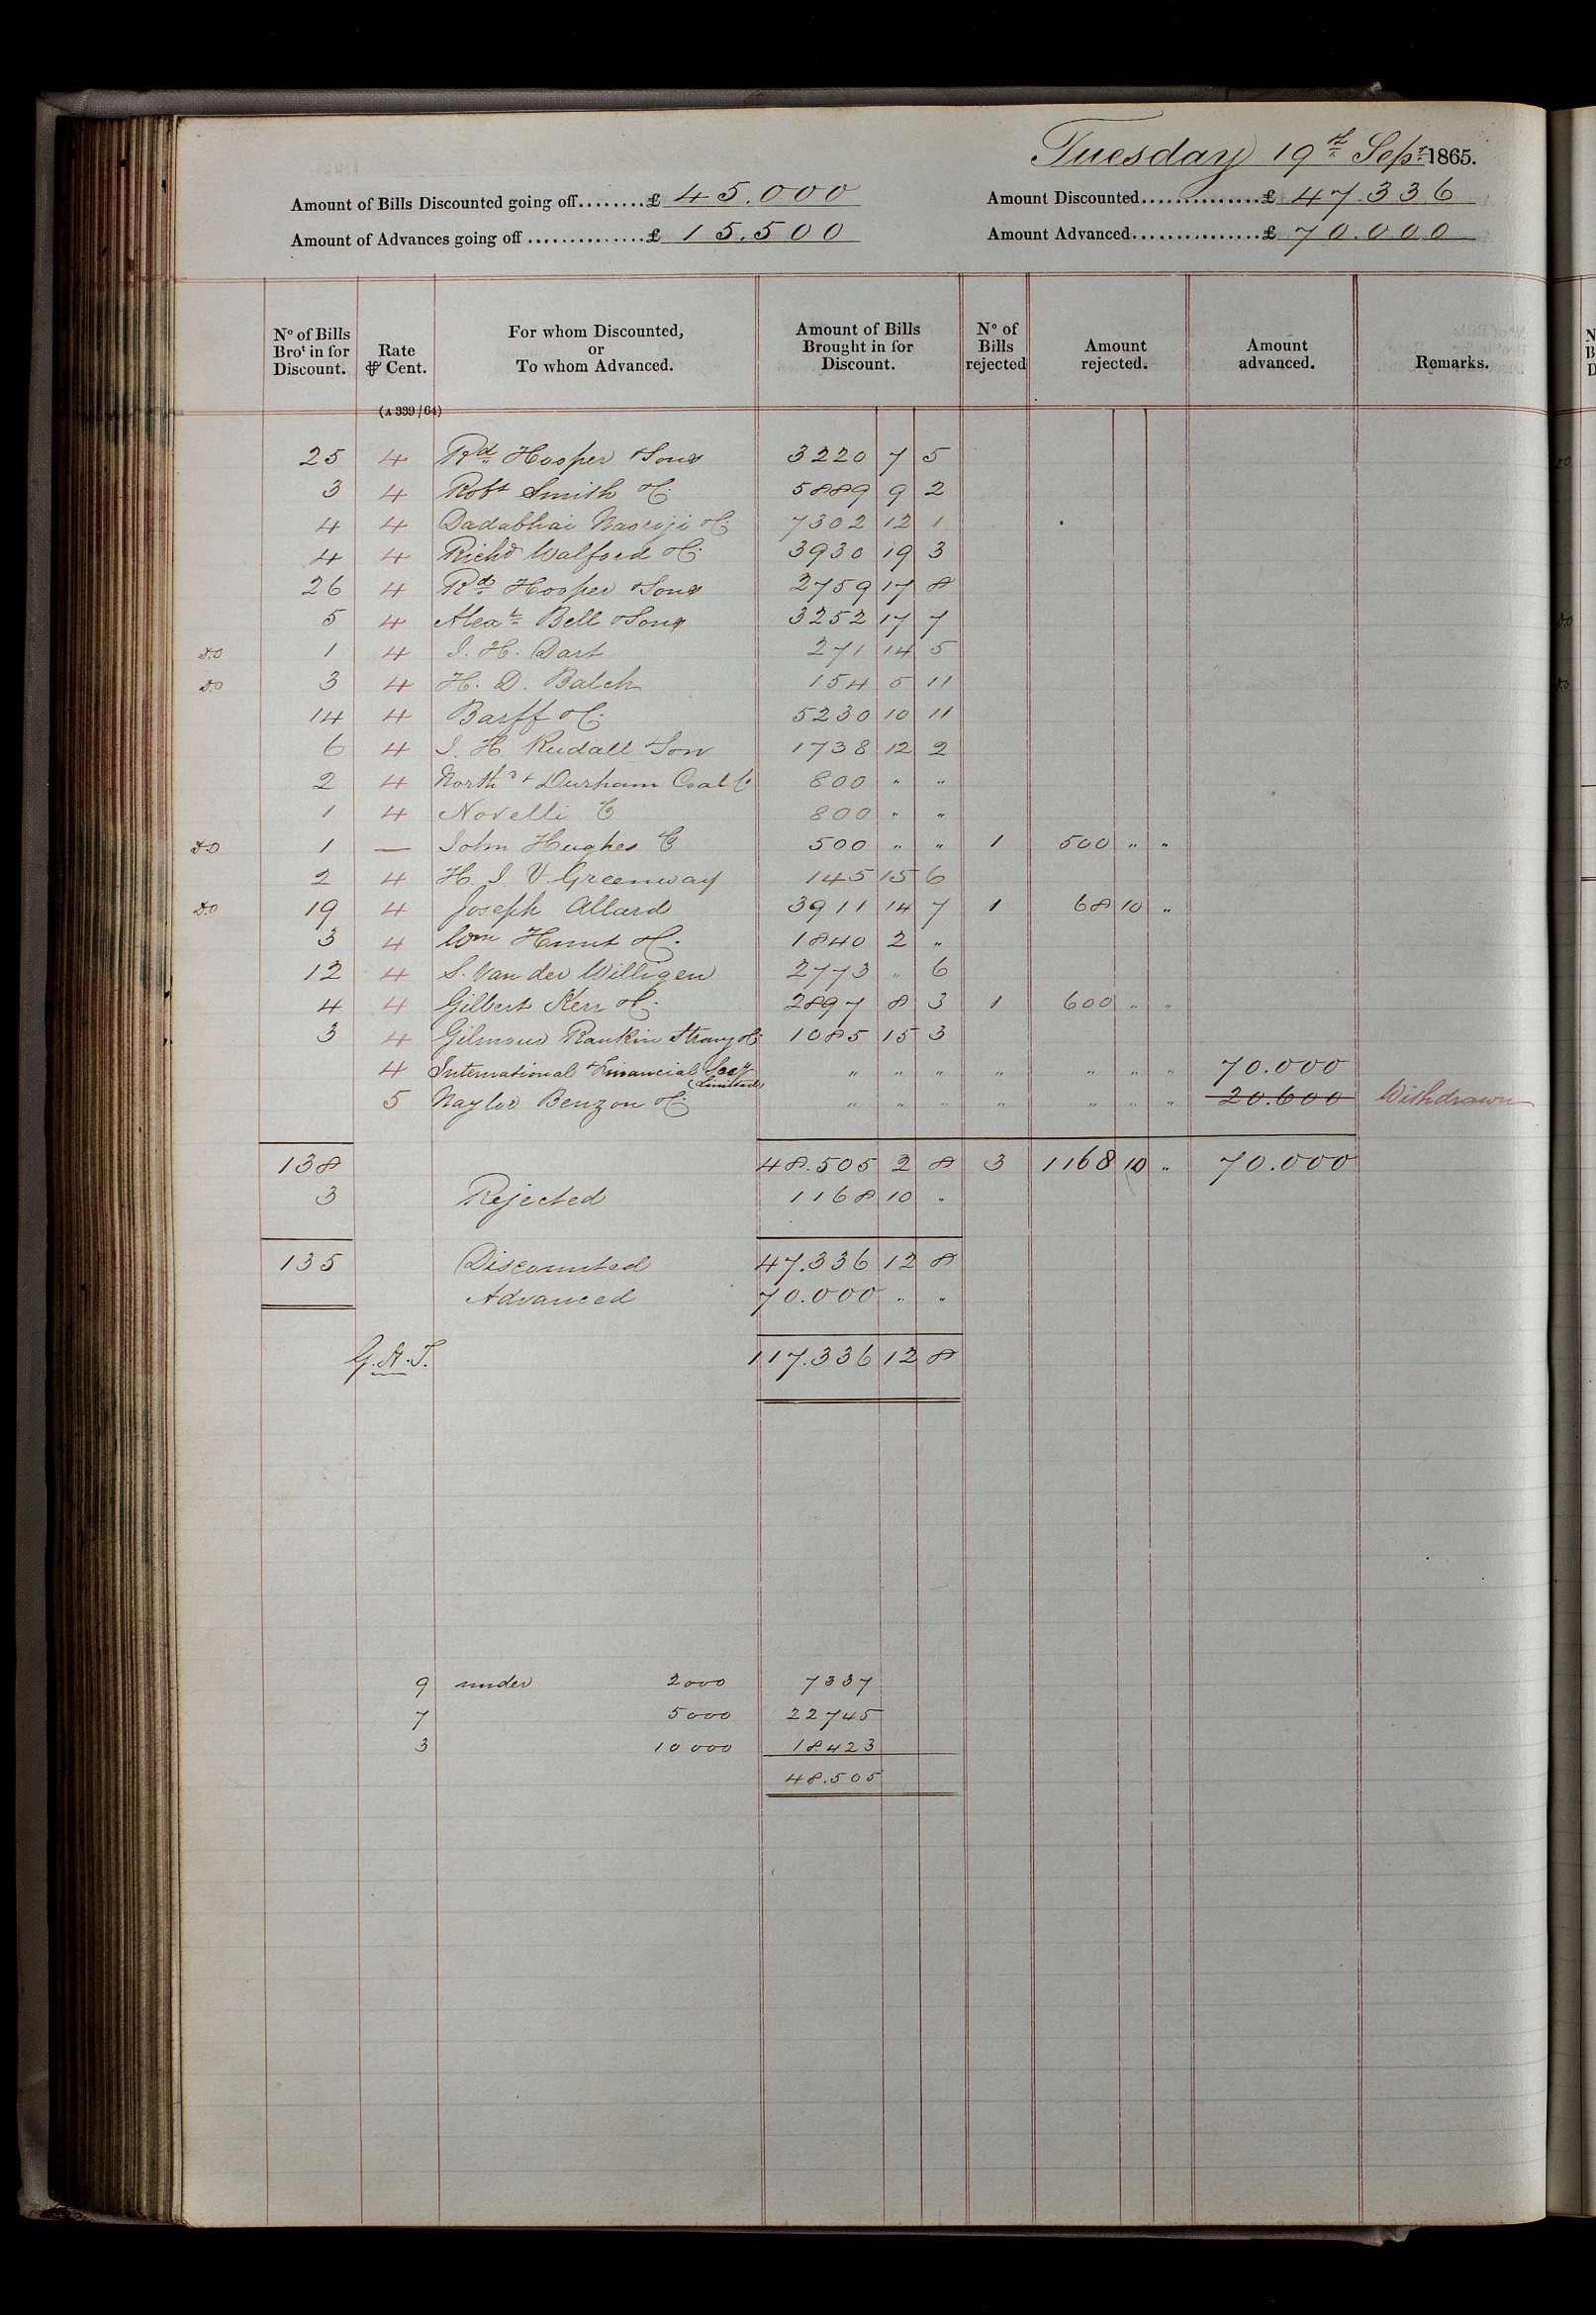 Tuesday 19th Sepr 1865.
Amount of Bills Discounted going off........£ 45.000 Amount Discounted...............£ 47.336
Amount of Advances going off ..............£ 15.500 Amount Advanced................£ 70.000
No of Bills Brot in for Discount. Rate ⅌ Cent. For whom Discounted, or To whom Advanced. Amount of Bills Brought in for Discount. No of Bills rejected Amount rejected. Amount advanced. Remarks.
(A 339/64)
25 4 Rd Hooper & Sons 3220 7 5
3 4 Robt Smith & Co 5889 9 2
4 4 Dadabhai Naoroji & Co 7302 12 1
4 4 Richd Walford & Co 3930 19 3
26 4 Rd Hooper & Sons 2759 17 8
5 4 Alexr Bell & Sons 3252 17 7
D.O 1 4 J. H. Dart 271 14 5
D.O 3 4 H. D. Balch 154 5 11
14 4 Barff & Co 5230 10 11
6 4 J. H Rudall & Son 1738 12 2
2 4 North & Durham Coal Co 800 " "
1 4 Novelli & Co 800 " "
D.O 1 — John Hughes & Co 500 " " 1 500 " "
2 4 H. J. V. Greenway 145 15 6
D.O 19 4 Joseph Allard 3911 14 7 1 68 10 "
3 4 Wm Hunt & Co. 1840 2 "
12 4 S. Van der Willigen 2773 " 6
4 4 Gilbert Kerr & Co 2897 8 3 1 600 " "
3 4 Gilmour Rankin Strang & Co 1085 15 3
4 International Financial Socy (Limited) " " " " " " " 70.000
5 Naylor Benzon & Co " " " " " " " 20.600 Withdrawn
138 48.505 2 8 3 1168 10 " 70.000
3 Rejected 1168 10 "
135 Discounted 47.336 12 8
Advanced 70.000 " "
G.A.T. 117.336 12 8
9 under 2000 7337
7 5000 22745
3 10000 18423
48.505